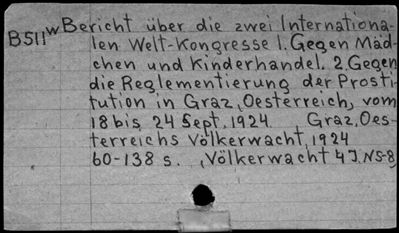 B511w Bericht über die zwei Internationa-
len Welt-Kongresse 1. Gegen Mäd-
chen und Kinderhandel. 2. Gegen
die Reglementierung der Prosti-
tution in Graz, Oesterreich, vom
18 bis 24 Sept. 1924 Graz, Oes-
terreichs Völkerwacht, 1924
60-138 s. (Völkerwacht 4J. N5-8)